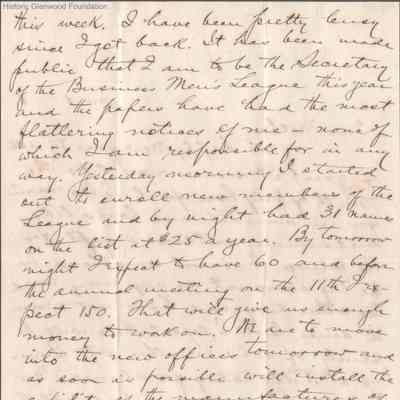 Historic Glenwood Foundation
this week. I have been pretty busy
since I got back. It has been made
public that I am to be the Secretary
of the Business Men's League this year
and the papers have had the most
flattering notices of me - none of
which I am responsible for in any
way. Yesterday morning I started
out to enroll new members of the
League and by night had 31 names
on the list at $25 a year. By tomorrow
night I expect to have 60 and before
the annual meeting on the 11th I ex-
pect 150. That will give us enough
money to work on. We are to move
into the new offices tomorrow and
as soon as possible will install the
exhibit of the manufactures as